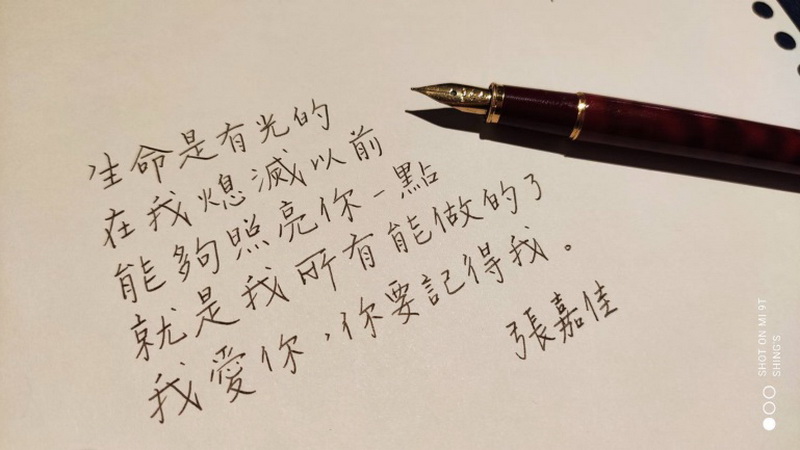 生命是有光的
在我熄滅以前
能夠照亮你一點
就是我所有能做的了
我愛你，你要記得我。
張嘉佳
SHOT ON MI 9T
SHING'S